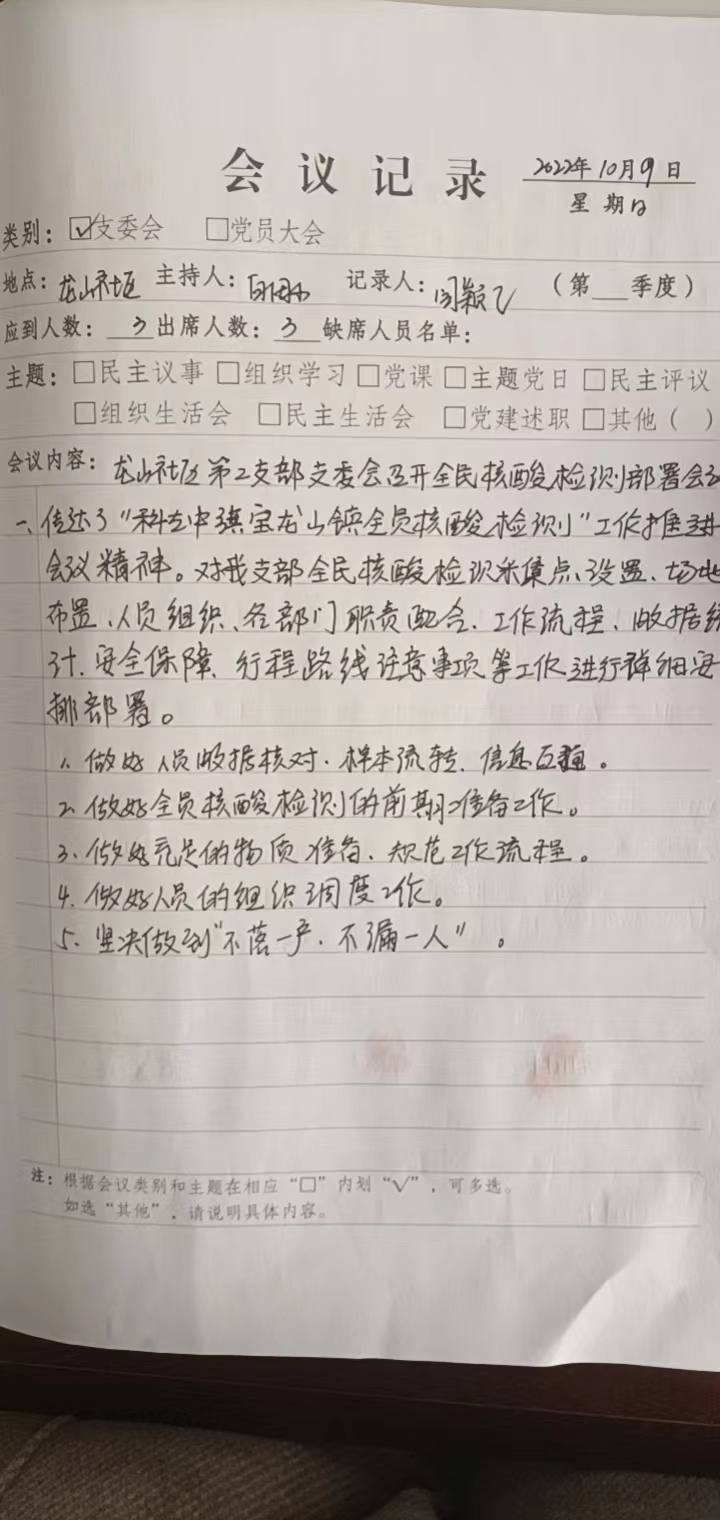 会议记录 2022年10月9日
星期日
类别：☑支委会 □党员大会
地点：龙山社区 主持人： 记录人：闫颖飞 （第__季度）
应到人数：3 出席人数：3 缺席人员名单：
主题：□民主议事 □组织学习 □党课 □主题党日 □民主评议
□组织生活会 □民主生活会 □党建述职 □其他（ ）
会议内容：龙山社区第2支部支委会召开全民核酸检测部署会议
一、传达了“科左中旗宝龙山镇全员核酸检测”工作推进
会议精神。对我支部全民核酸检测采集点、设置、场地
布置、人员组织、各部门职责配合、工作流程、数据统
计、安全保障、行程路线注意事项等工作进行详细安
排部署。
1、做好人员数据核对、样本流转、信息
2、做好全员核酸检测的前期准备工作。
3、做好充足的物质准备、规范工作流程。
4、做好人员的组织调度工作。
5、坚决做到“不落一户、不漏一人”。
注：根据会议类别和主题在相应“□”内划“√”，可多选。
如选“其他”，请说明具体内容。